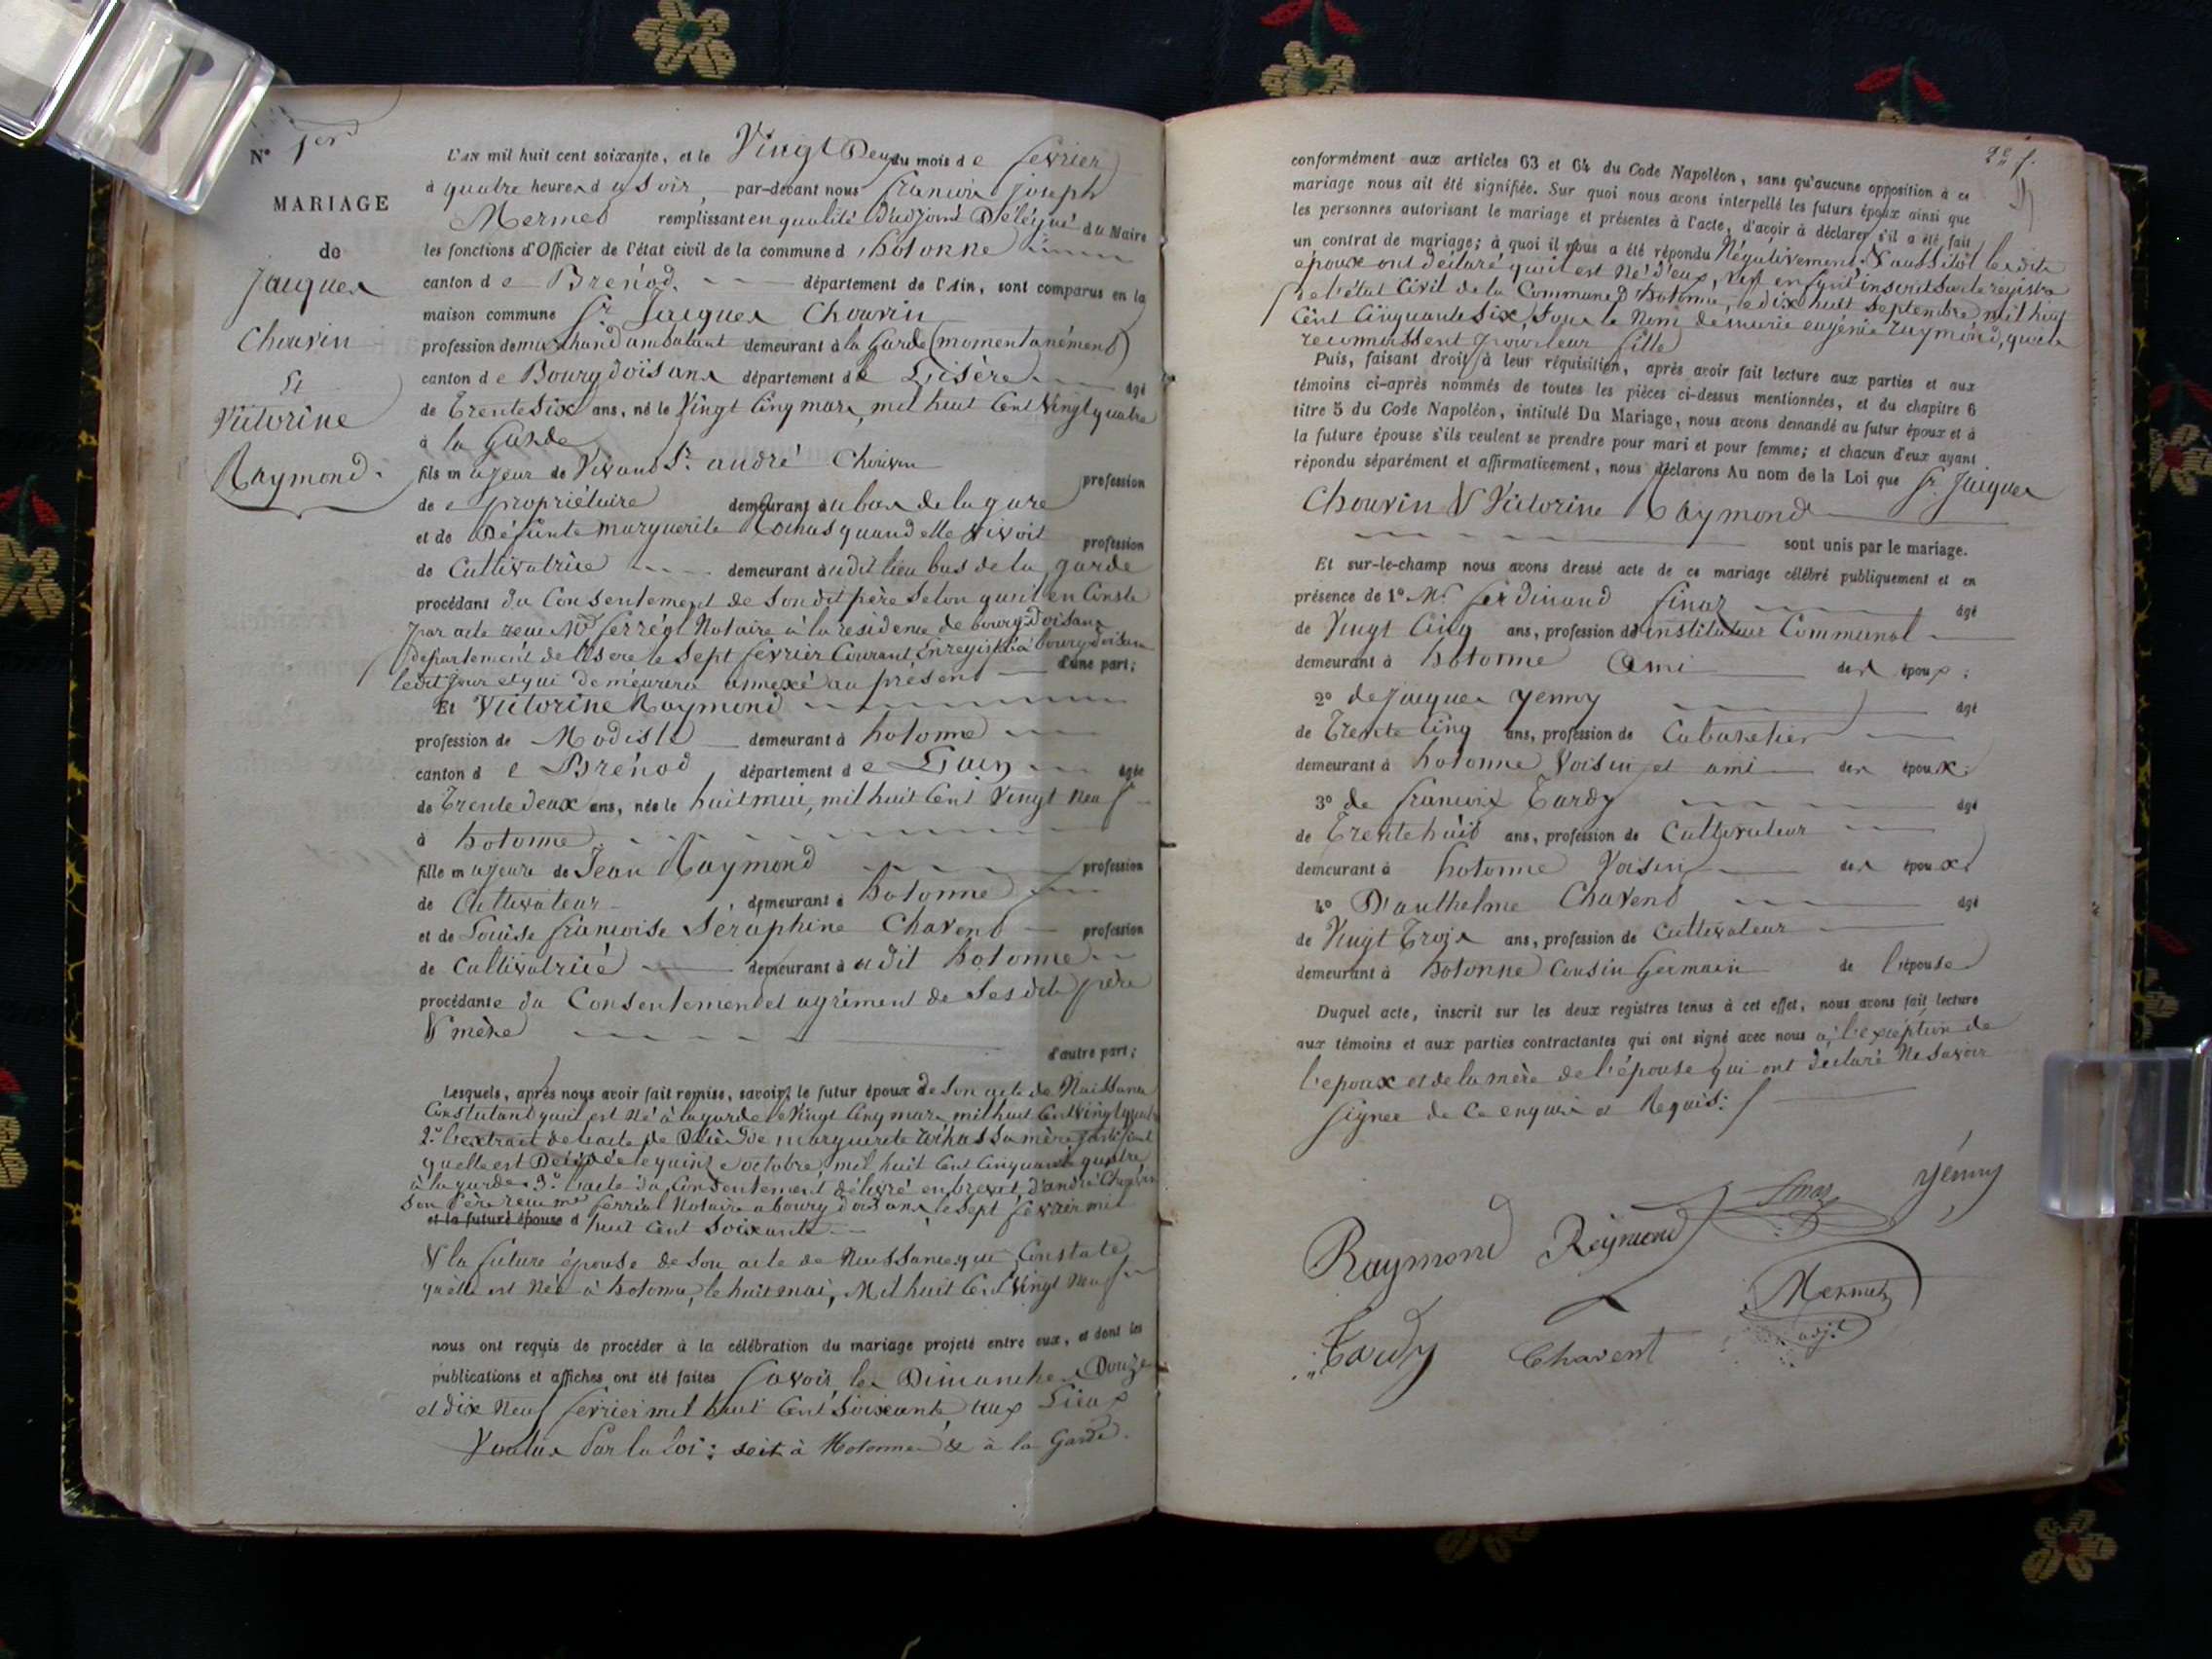 N° 1er
MARIAGE
de
Jacques
Chouvin
Et
Victorine
Raymond.
L'an mil huit cent soixante, et le Vingt Deux du mois de fevrier
à quatre heures du soir par-devant nous francois joseph
Mermet remplissant en qualité d'adjoint Délégué du Maire
les fonctions d'Officier de l'état civil de la commune d'hotonne
canton de Brénod. département de l'Ain, sont comparus en la
maison commune Sr Jacques Chouvin
profession de marchand ambulant demeurant à la Garde (momentanément)
canton de Bourg d'oisans département de L'isère âgé
de Trente Six ans, né le Vingt Cinq mars, mil huit Cent Vingt quatre
à la Garde
fils majeur de Vivant Sr. andré Chouvin profession
de propriétaire demeurant au bas de la garde
et de Défunte marguerite quand elle vivoit profession
de Cultivatrice demeurant audit lieu bas de la garde
procédant du Consentement de Son dit père Selon qu'il en Conste
par acte reçu Notaire à la residence de bourg d'oisans
département de l'isere le Sept fevrier Courant, enregistré à bourg d'oisans
ledit jour et qui demeurera annexé au présent d'une part;
Et Victorine Raymond
profession de Modiste demeurant à hotonne
canton de Brénod département de L'ain âgée
de Trente deux ans, née le huit mai, mil huit Cent Vingt Neuf
à hotonne
fille majeure de Jean Raymond profession
de Cultivateur demeurant à hotonne
et de Louise francoise Séraphine Chavent profession
de Cultivatrice demeurant à udit hotonne
procédante du Consentement et agrément de Ses dits père
& mère
d'autre part;
Lesquels, après nous avoir fait remise, savoir, le futur époux de Son acte de Naissance
Constatant qu'il est Né à la garde le Vingt Cinq mars mil huit Cent Vingt quatre
2.° l'extrait de l'acte de Décès de marguerite Sa mère justifiant
qu'elle est Décédée le quinze octobre mil huit Cent Cinquante quatre
à la garde. 3.° l'acte du Consentement délivré en brevet, d'andré Chouvin
Son Père reçu me Notaire a bourg d'oisans le Sept fevrier mil
et la future épouse d huit Cent Soixante
& la future épouse de Son acte de Naissance qui Constate
qu'elle est Née à hotonne, le huit mai, Mil huit Cent Vingt Neuf
nous ont requis de procéder à la célébration du mariage projeté entre eux, et dont les
publications et affiches ont été faites Savoir les Dimanches Douze
et dix Neuf fevrier mil huit Cent Soixante aux Lieux
Voulus Par la Loi: soit à Hotonne & à la Garde.
conformément aux articles 63 et 64 du Code Napoléon, sans qu'aucune opposition à ce
mariage nous ait été signifiée. Sur quoi nous avons interpellé les futurs époux ainsi que
les personnes autorisant le mariage et présentes à l'acte, d'avoir à déclarer s'il a été fait
un contrat de mariage; à quoi il nous a été répondu Négativement. & aussitôt lesdits
époux ont déclaré qu'il est Né d'eux, inscrit Sur le registre
de l'état Civil de la Commune d'hotonne, le dix huit Septembre mil huit
Cent Cinquante Six, Sous le Nom de marie eugénie Raymond, qu'ils
reconnaissent pour leur fille
Puis, faisant droit à leur réquisition, après avoir fait lecture aux parties et aux
témoins ci-après nommés de toutes les pièces ci-dessus mentionnées, et du chapitre 6
titre 5 du Code Napoléon, intitulé Du Mariage, nous avons demandé au futur époux et à
la future épouse s'ils veulent se prendre pour mari et pour femme; et chacun d'eux ayant
répondu séparément et affirmativement, nous déclarons Au nom de la Loi que Sr. Jacques
Chouvin & Victorine Raymond
sont unis par le mariage.
Et sur-le-champ nous avons dressé acte de ce mariage célébré publiquement et en
présence de 1° Mr. ferdinand finaz âgé
de Vingt Cinq ans, profession d'instituteur Communal
demeurant à hotonne Ami des époux;
2° de jacques yenny âgé
de Trente Cinq ans, profession de Cabaretier
demeurant à hotonne Voisin et ami des époux;
3° de francoix Tardy âgé
de Trente huit ans, profession de Cultivateur
demeurant à hotonne Voisin des époux
4° D'anthelme Chavent âgé
de Vingt Trois ans, profession de Cultivateur
demeurant à hotonne Cousin Germain de l'épouse
Duquel acte, inscrit sur les deux registres tenus à cet effet, nous avons fait lecture
aux témoins et aux parties contractantes qui ont signé avec nous à l'exception de
l'epoux et de la mère de l'épouse qui ont declaré Ne Savoir
Signer de Ce enquis et Requis.
Raymond Reymond finaz yenny
Mermet
adjt
Tardy Chavent